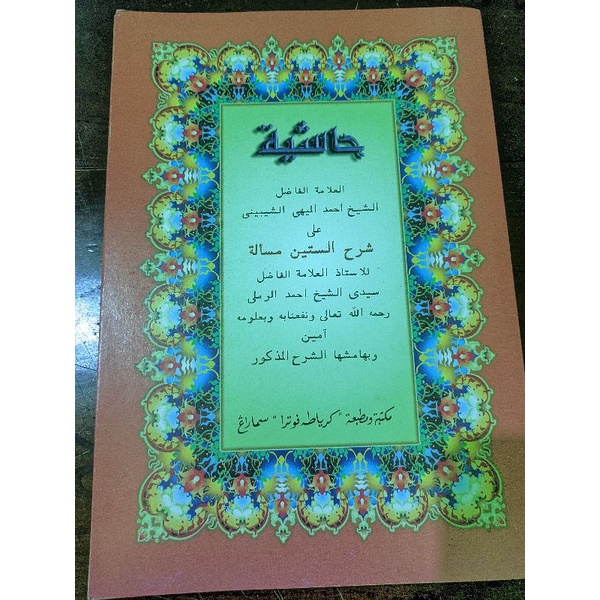 حاشية
العلامة الفاضل
الشيخ احمد الميهى الشيبينى
على
شرح الستين مسالة
للاستاذ العلامة الفاضل
سيدى الشيخ احمد الرملى
رحمه الله تعالى ونفعنابه وبعلومه
آمين
وبهامشها الشرح المذكور
مكتبة ومطبعة "كرياطه فوترا" سماراڠ